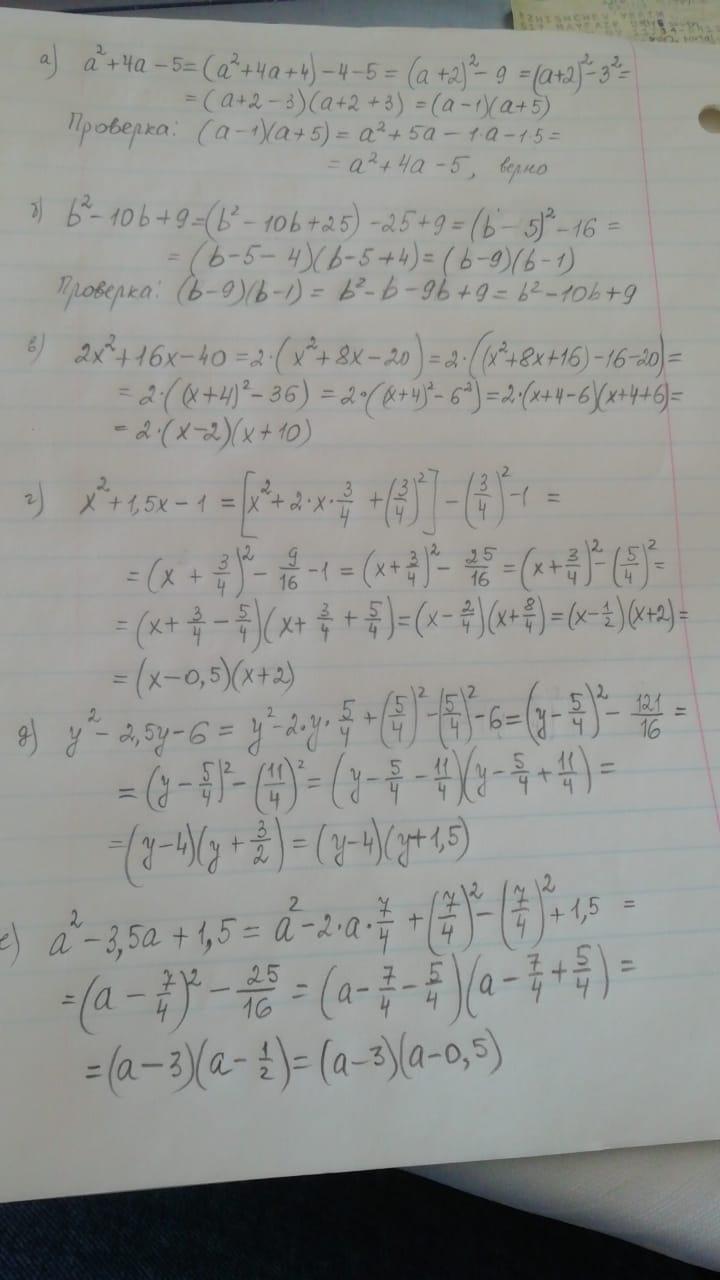 а) a²+4a-5=(a²+4a+4)-4-5=(a+2)²-9=(a+2)²-3²=
=(a+2-3)(a+2+3)=(a-1)(a+5)
Проверка: (a-1)(a+5)=a²+5a-1·a-1·5=
=a²+4a-5, верно
б) b²-10b+9=(b²-10b+25)-25+9=(b-5)²-16=
=(b-5-4)(b-5+4)=(b-9)(b-1)
Проверка: (b-9)(b-1)=b²-b-9b+9=b²-10b+9
в) 2x²+16x-40=2·(x²+8x-20)=2·((x²+8x+16)-16-20)=
=2·((x+4)²-36)=2·((x+4)²-6²)=2·(x+4-6)(x+4+6)=
=2·(x-2)(x+10)
г) x²+1,5x-1=[x²+2·x·3/4+(3/4)²]-(3/4)²-1=
=(x+3/4)²-9/16-1=(x+3/4)²-25/16=(x+3/4)²-(5/4)²=
=(x+3/4-5/4)(x+3/4+5/4)=(x-2/4)(x+8/4)=(x-1/2)(x+2)=
=(x-0,5)(x+2)
д) y²-2,5y-6=y²-2·y·5/4+(5/4)²-(5/4)²-6=(y-5/4)²-121/16=
=(y-5/4)²-(11/4)²=(y-5/4-11/4)(y-5/4+11/4)=
=(y-4)(y+3/2)=(y-4)(y+1,5)
е) a²-3,5a+1,5=a²-2·a·7/4+(7/4)²-(7/4)²+1,5=
=(a-7/4)²-25/16=(a-7/4-5/4)(a-7/4+5/4)=
=(a-3)(a-1/2)=(a-3)(a-0,5)